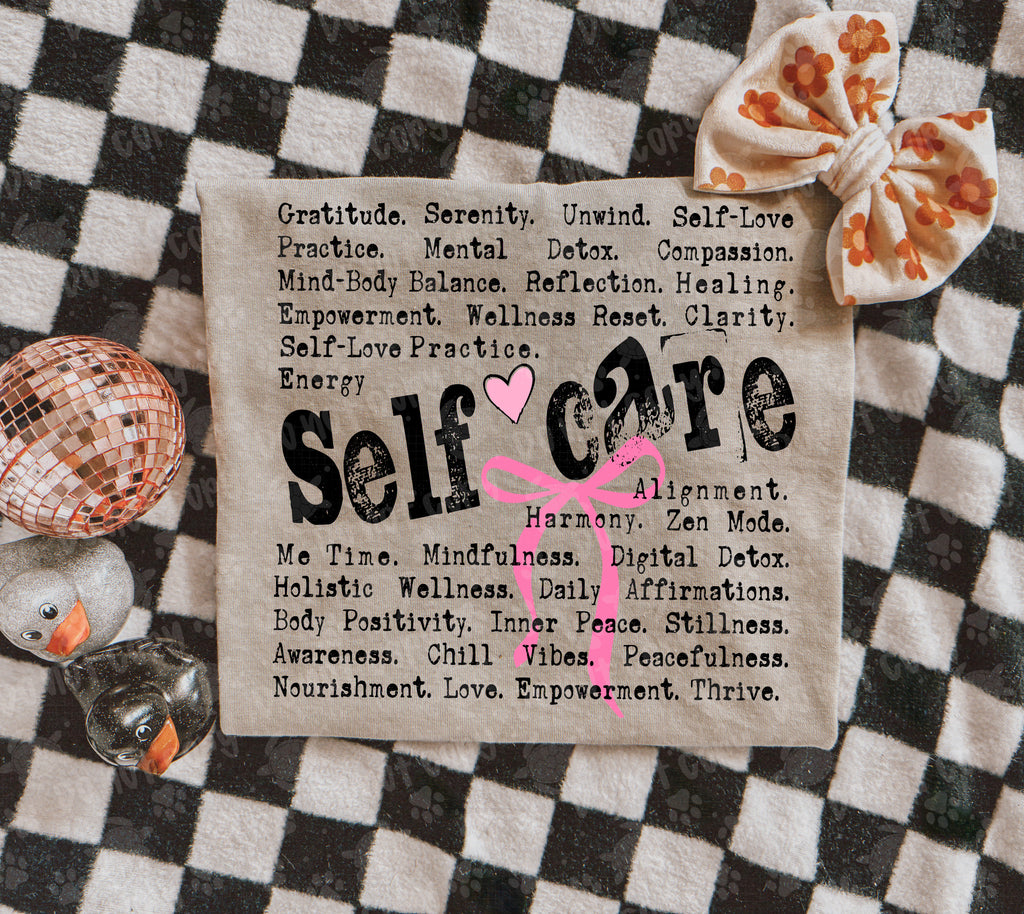 Gratitude. Serenity. Unwind. Self-Love
Practice. Mental Detox. Compassion.
Mind-Body Balance. Reflection. Healing.
Empowerment. Wellness Reset. Clarity.
Self-Love Practice.
Energy
Self care
Alignment.
Harmony. Zen Mode.
Me Time. Mindfulness. Digital Detox.
Holistic Wellness. Daily Affirmations.
Body Positivity. Inner Peace. Stillness.
Awareness. Chill Vibes. Peacefulness.
Nourishment. Love. Empowerment. Thrive.